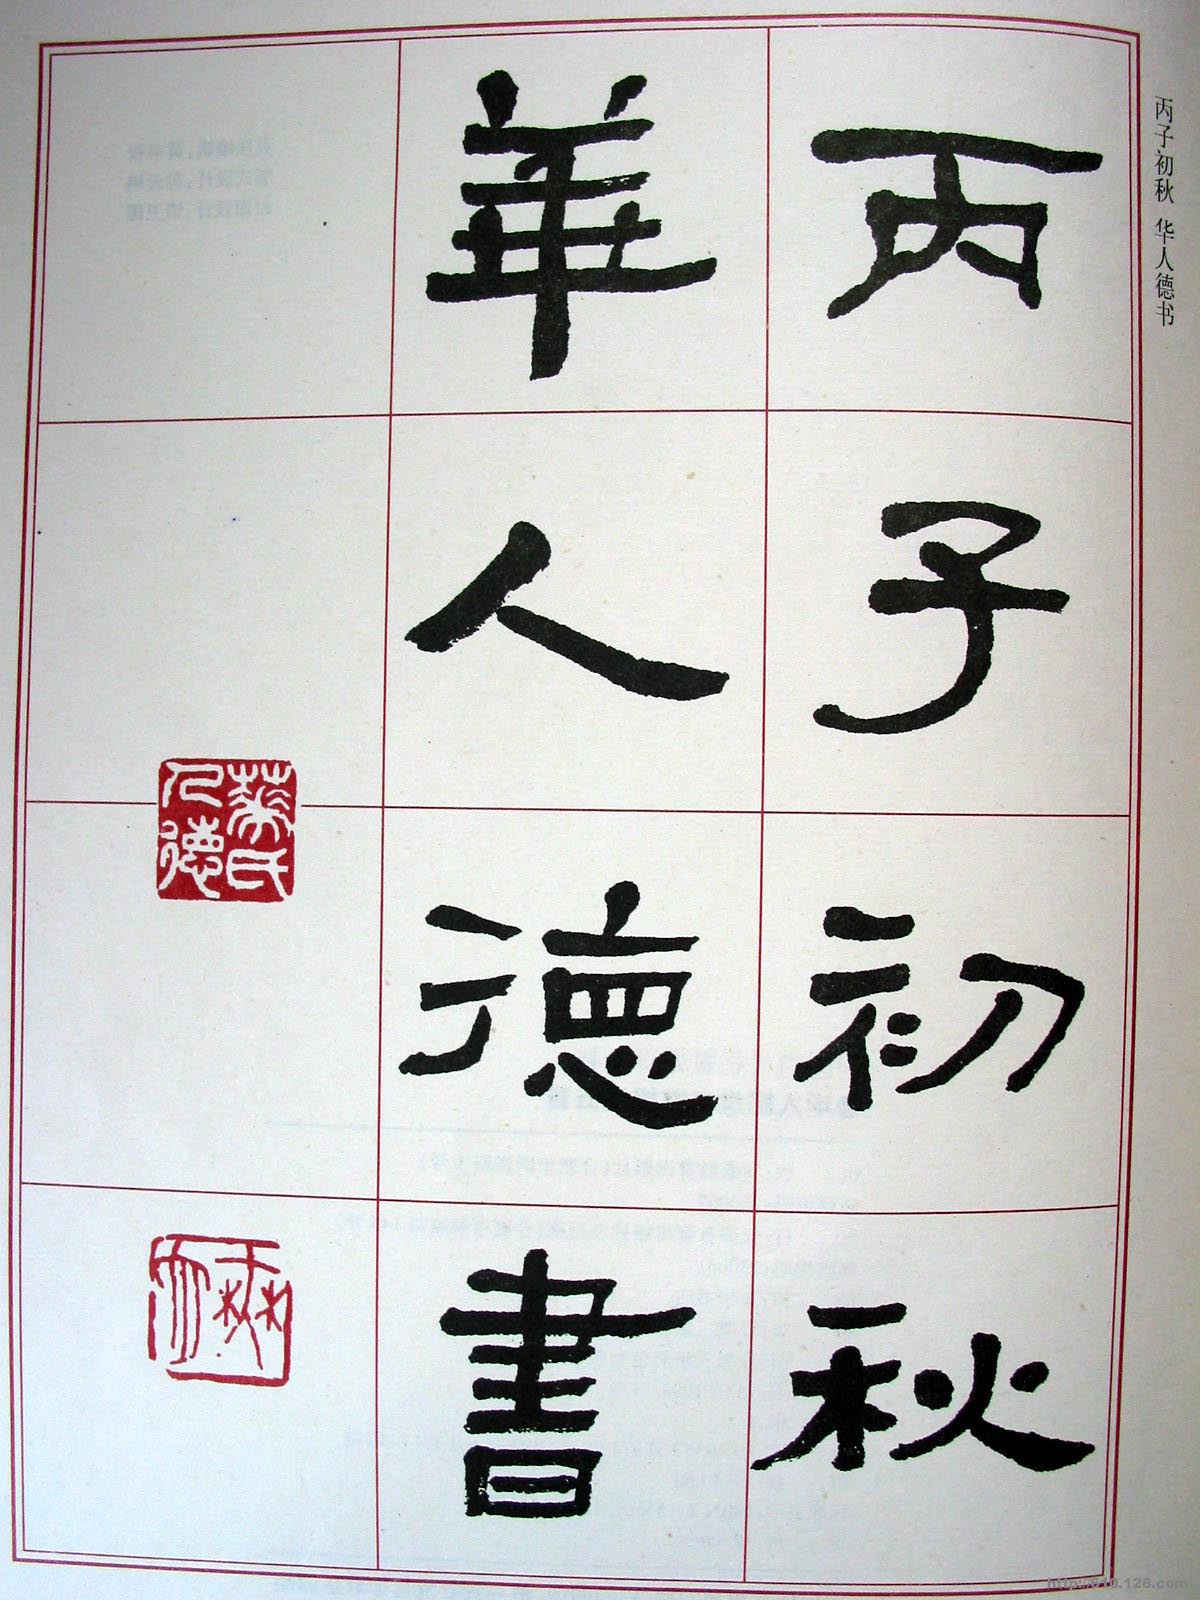 丙子初秋
華人德書
華氏人德
丙子初秋 华人德书
http://610.126.com